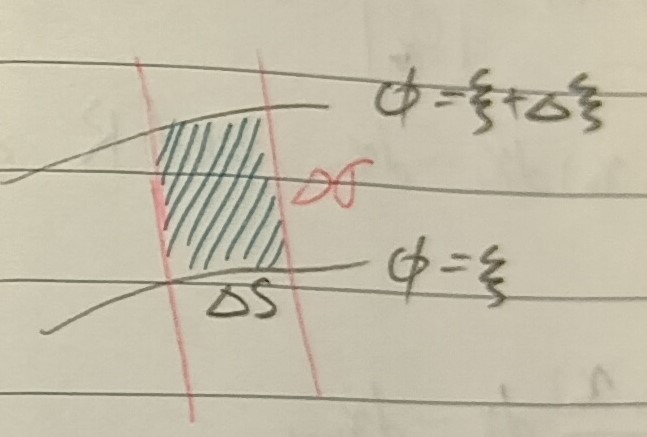 ϕ = ξ + Δξ
Δσ
ϕ = ξ
ΔS